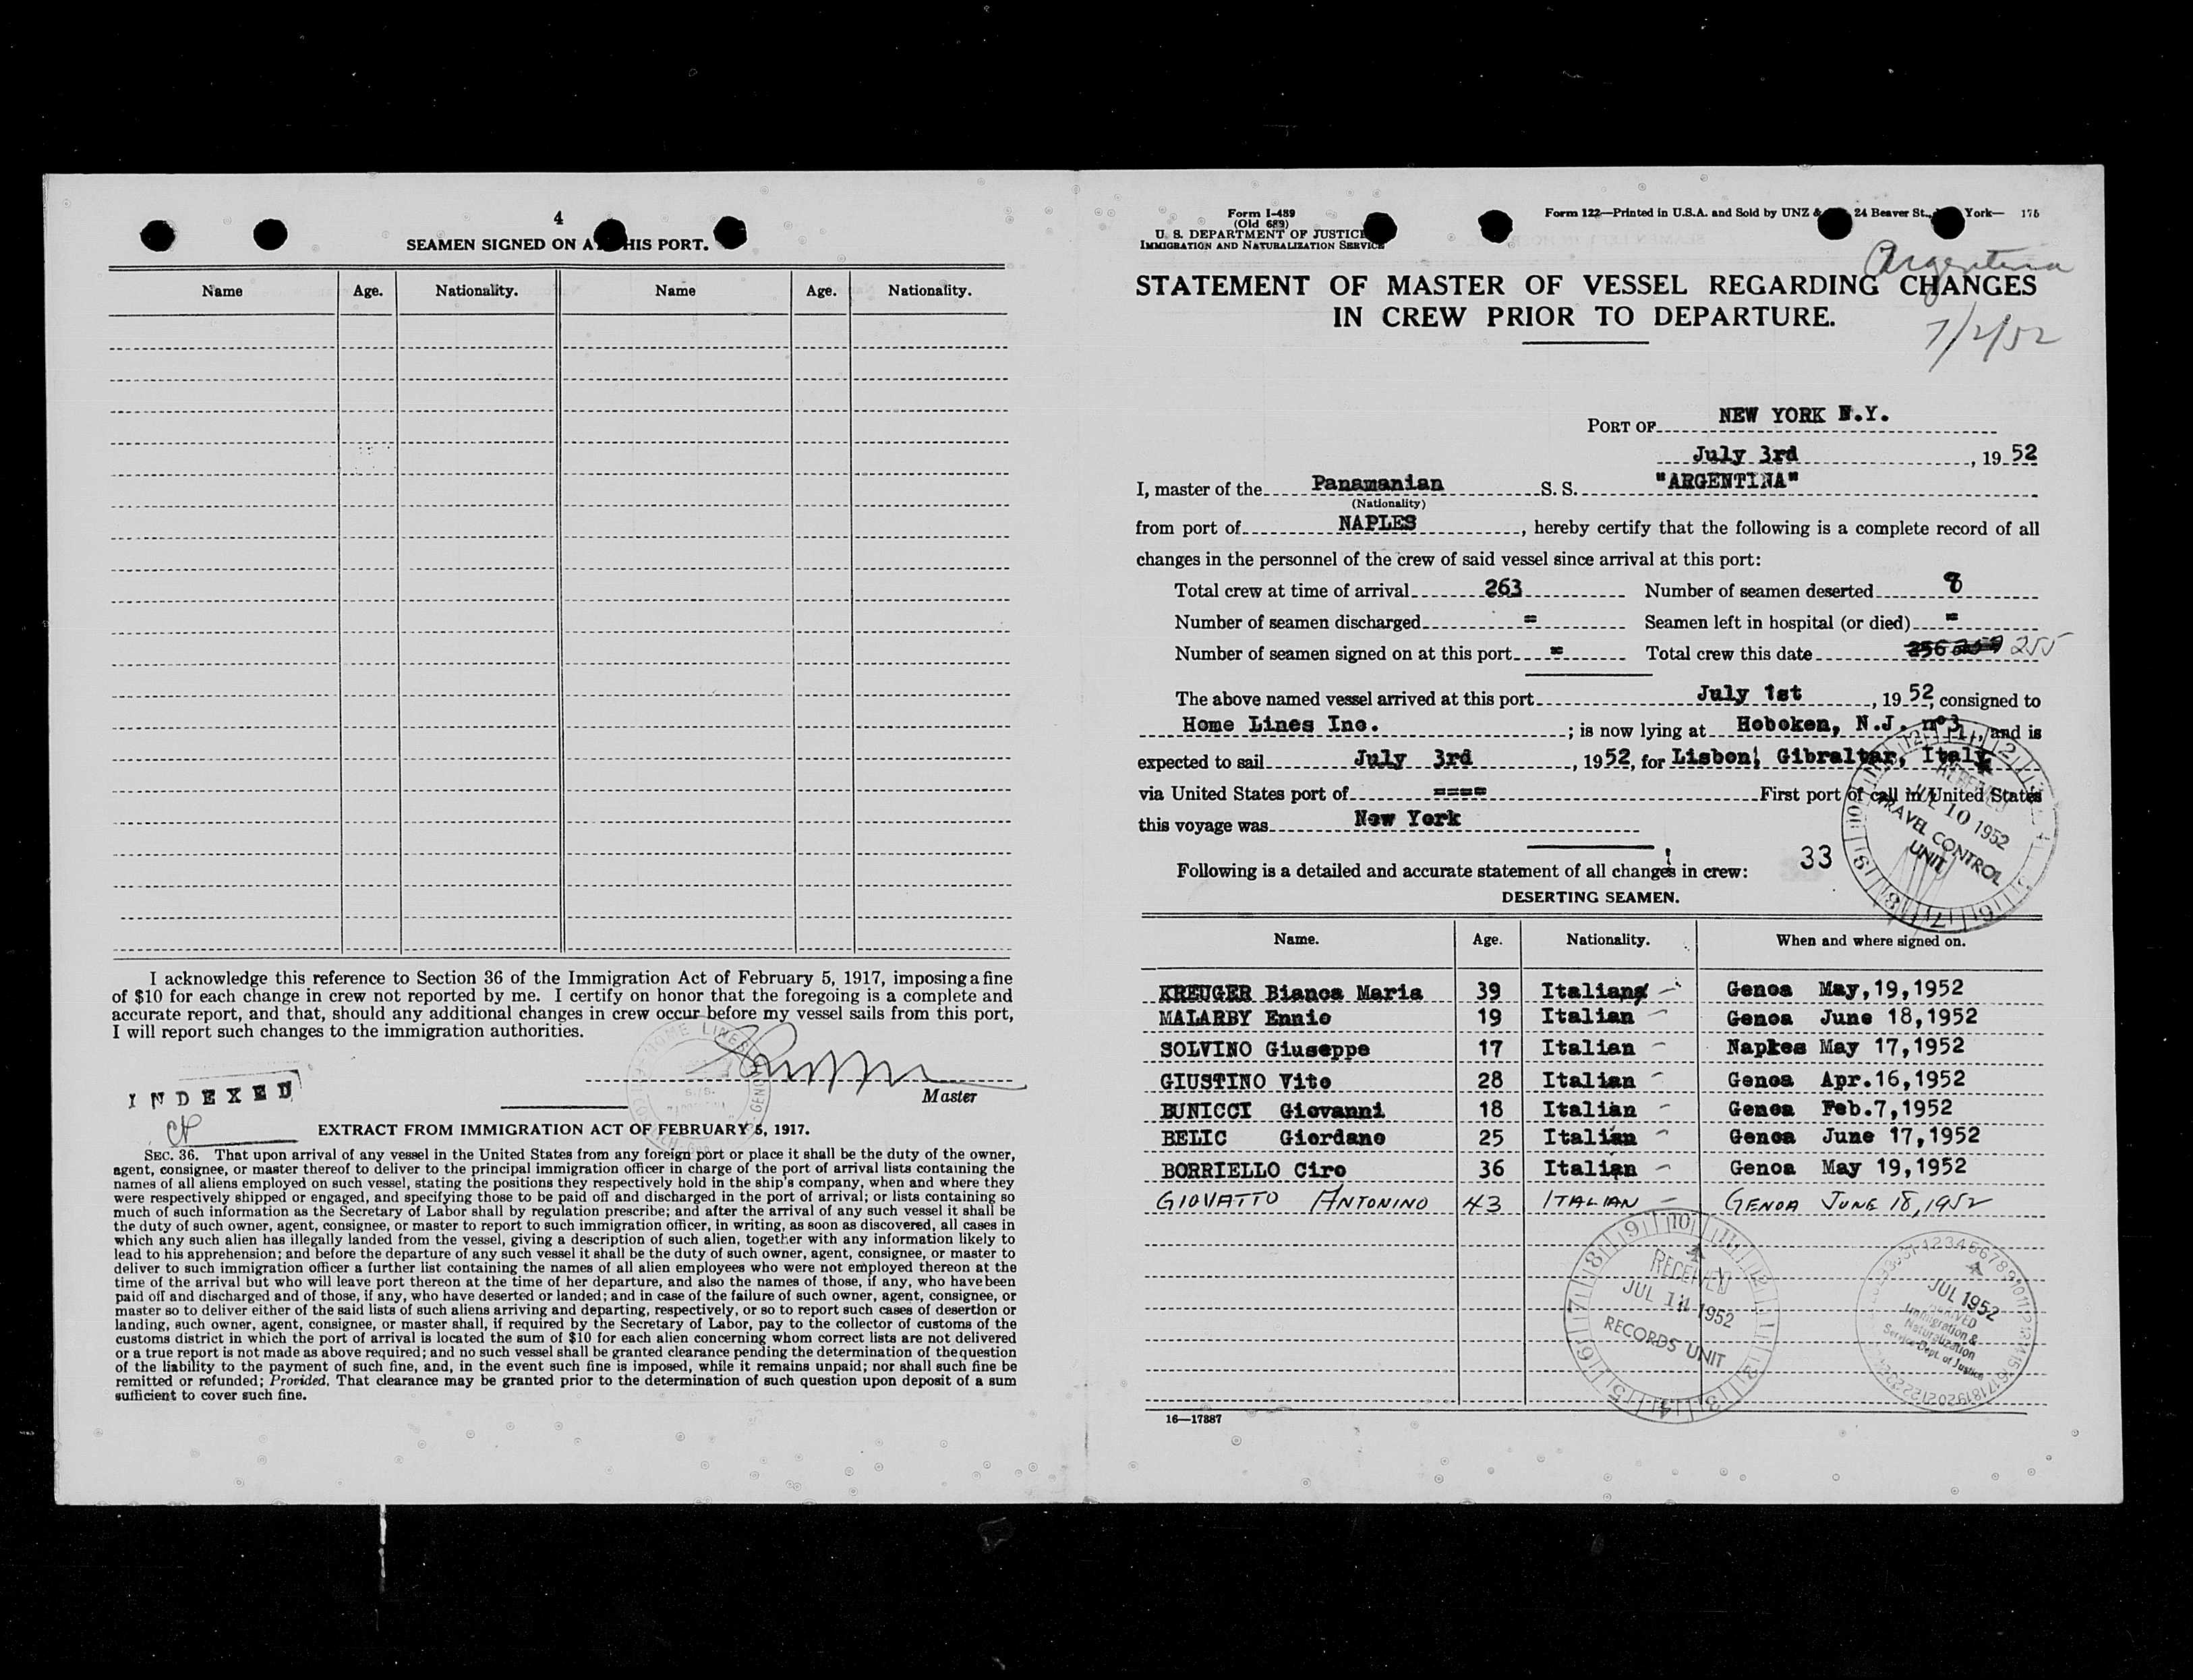 4
SEAMEN SIGNED ON AT THIS PORT.
Name Age. Nationality. Name Age. Nationality.
I acknowledge this reference to Section 36 of the Immigration Act of February 5, 1917, imposing a fine
of $10 for each change in crew not reported by me. I certify on honor that the foregoing is a complete and
accurate report, and that, should any additional changes in crew occur before my vessel sails from this port,
I will report such changes to the immigration authorities.
HOME LINES
Master
INDEXED
EXTRACT FROM IMMIGRATION ACT OF FEBRUARY 5, 1917.
SEC. 36. That upon arrival of any vessel in the United States from any foreign port or place it shall be the duty of the owner,
agent, consignee, or master thereof to deliver to the principal immigration officer in charge of the port of arrival lists containing the
names of all aliens employed on such vessel, stating the positions they respectively hold in the ship's company, when and where they
were respectively shipped or engaged, and specifying those to be paid off and discharged in the port of arrival; or lists containing so
much of such information as the Secretary of Labor shall by regulation prescribe; and after the arrival of any such vessel it shall be
the duty of such owner, agent, consignee, or master to report to such immigration officer, in writing, as soon as discovered, all cases in
which any such alien has illegally landed from the vessel, giving a description of such alien, together with any information likely to
lead to his apprehension; and before the departure of any such vessel it shall be the duty of such owner, agent, consignee, or master to
deliver to such immigration officer a further list containing the names of all alien employees who were not employed thereon at the
time of the arrival but who will leave port thereon at the time of her departure, and also the names of those, if any, who have been
paid off and discharged and of those, if any, who have deserted or landed; and in case of the failure of such owner, agent, consignee, or
master so to deliver either of the said lists of such aliens arriving and departing, respectively, or so to report such cases of desertion or
landing, such owner, agent, consignee, or master shall, if required by the Secretary of Labor, pay to the collector of customs of the
customs district in which the port of arrival is located the sum of $10 for each alien concerning whom correct lists are not delivered
or a true report is not made as above required; and no such vessel shall be granted clearance pending the determination of the question
of the liability to the payment of such fine, and, in the event such fine is imposed, while it remains unpaid; nor shall such fine be
remitted or refunded; Provided, That clearance may be granted prior to the determination of such question upon deposit of a sum
sufficient to cover such fine.
Form I-489
(Old 689)
U. S. DEPARTMENT OF JUSTICE
IMMIGRATION AND NATURALIZATION SERVICE
Form 122—Printed in U.S.A. and Sold by UNZ & 24 Beaver St., York— 175
Argentina
STATEMENT OF MASTER OF VESSEL REGARDING CHANGES
IN CREW PRIOR TO DEPARTURE.
7/2/52
PORT OF NEW YORK N.Y.
July 3rd, 1952
I, master of the Panamanian S. S. "ARGENTINA"
(Nationality)
from port of NAPLES, hereby certify that the following is a complete record of all
changes in the personnel of the crew of said vessel since arrival at this port:
Total crew at time of arrival 263 Number of seamen deserted 8
Number of seamen discharged = Seamen left in hospital (or died) =
Number of seamen signed on at this port = Total crew this date 256 255
The above named vessel arrived at this port July 1st, 1952, consigned to
Home Lines Inc.; is now lying at Hoboken, N.J. nº3, and is
expected to sail July 3rd, 1952, for Lisbon, Gibraltar, Italy
via United States port of ==== First port of call in United States
this voyage was New York
JUL 10 1952
TRAVEL CONTROL
UNIT
33
Following is a detailed and accurate statement of all changes in crew:
DESERTING SEAMEN.
Name. Age. Nationality. When and where signed on.
KREUGER Bianca Maria 39 Italiana Genoa May,19,1952
MALARBY Ennio 19 Italian Genoa June 18,1952
SOLVINO Giuseppe 17 Italian Napkes May 17,1952
GIUSTINO Vito 28 Italian Genoa Apr.16,1952
BUNICCI Giovanni 18 Italian Genoa Feb.7,1952
BELIC Giordano 25 Italian Genoa June 17,1952
BORRIELLO Ciro 36 Italian Genoa May 19,1952
GIOVATTO ANTONINO 43 ITALIAN GENOA JUNE 18, 1952
RECEIVED
JUL 11 1952
RECORDS UNIT
JUL 1952
Immigration &
Naturalization
Service Dept. of Justice
16—17887